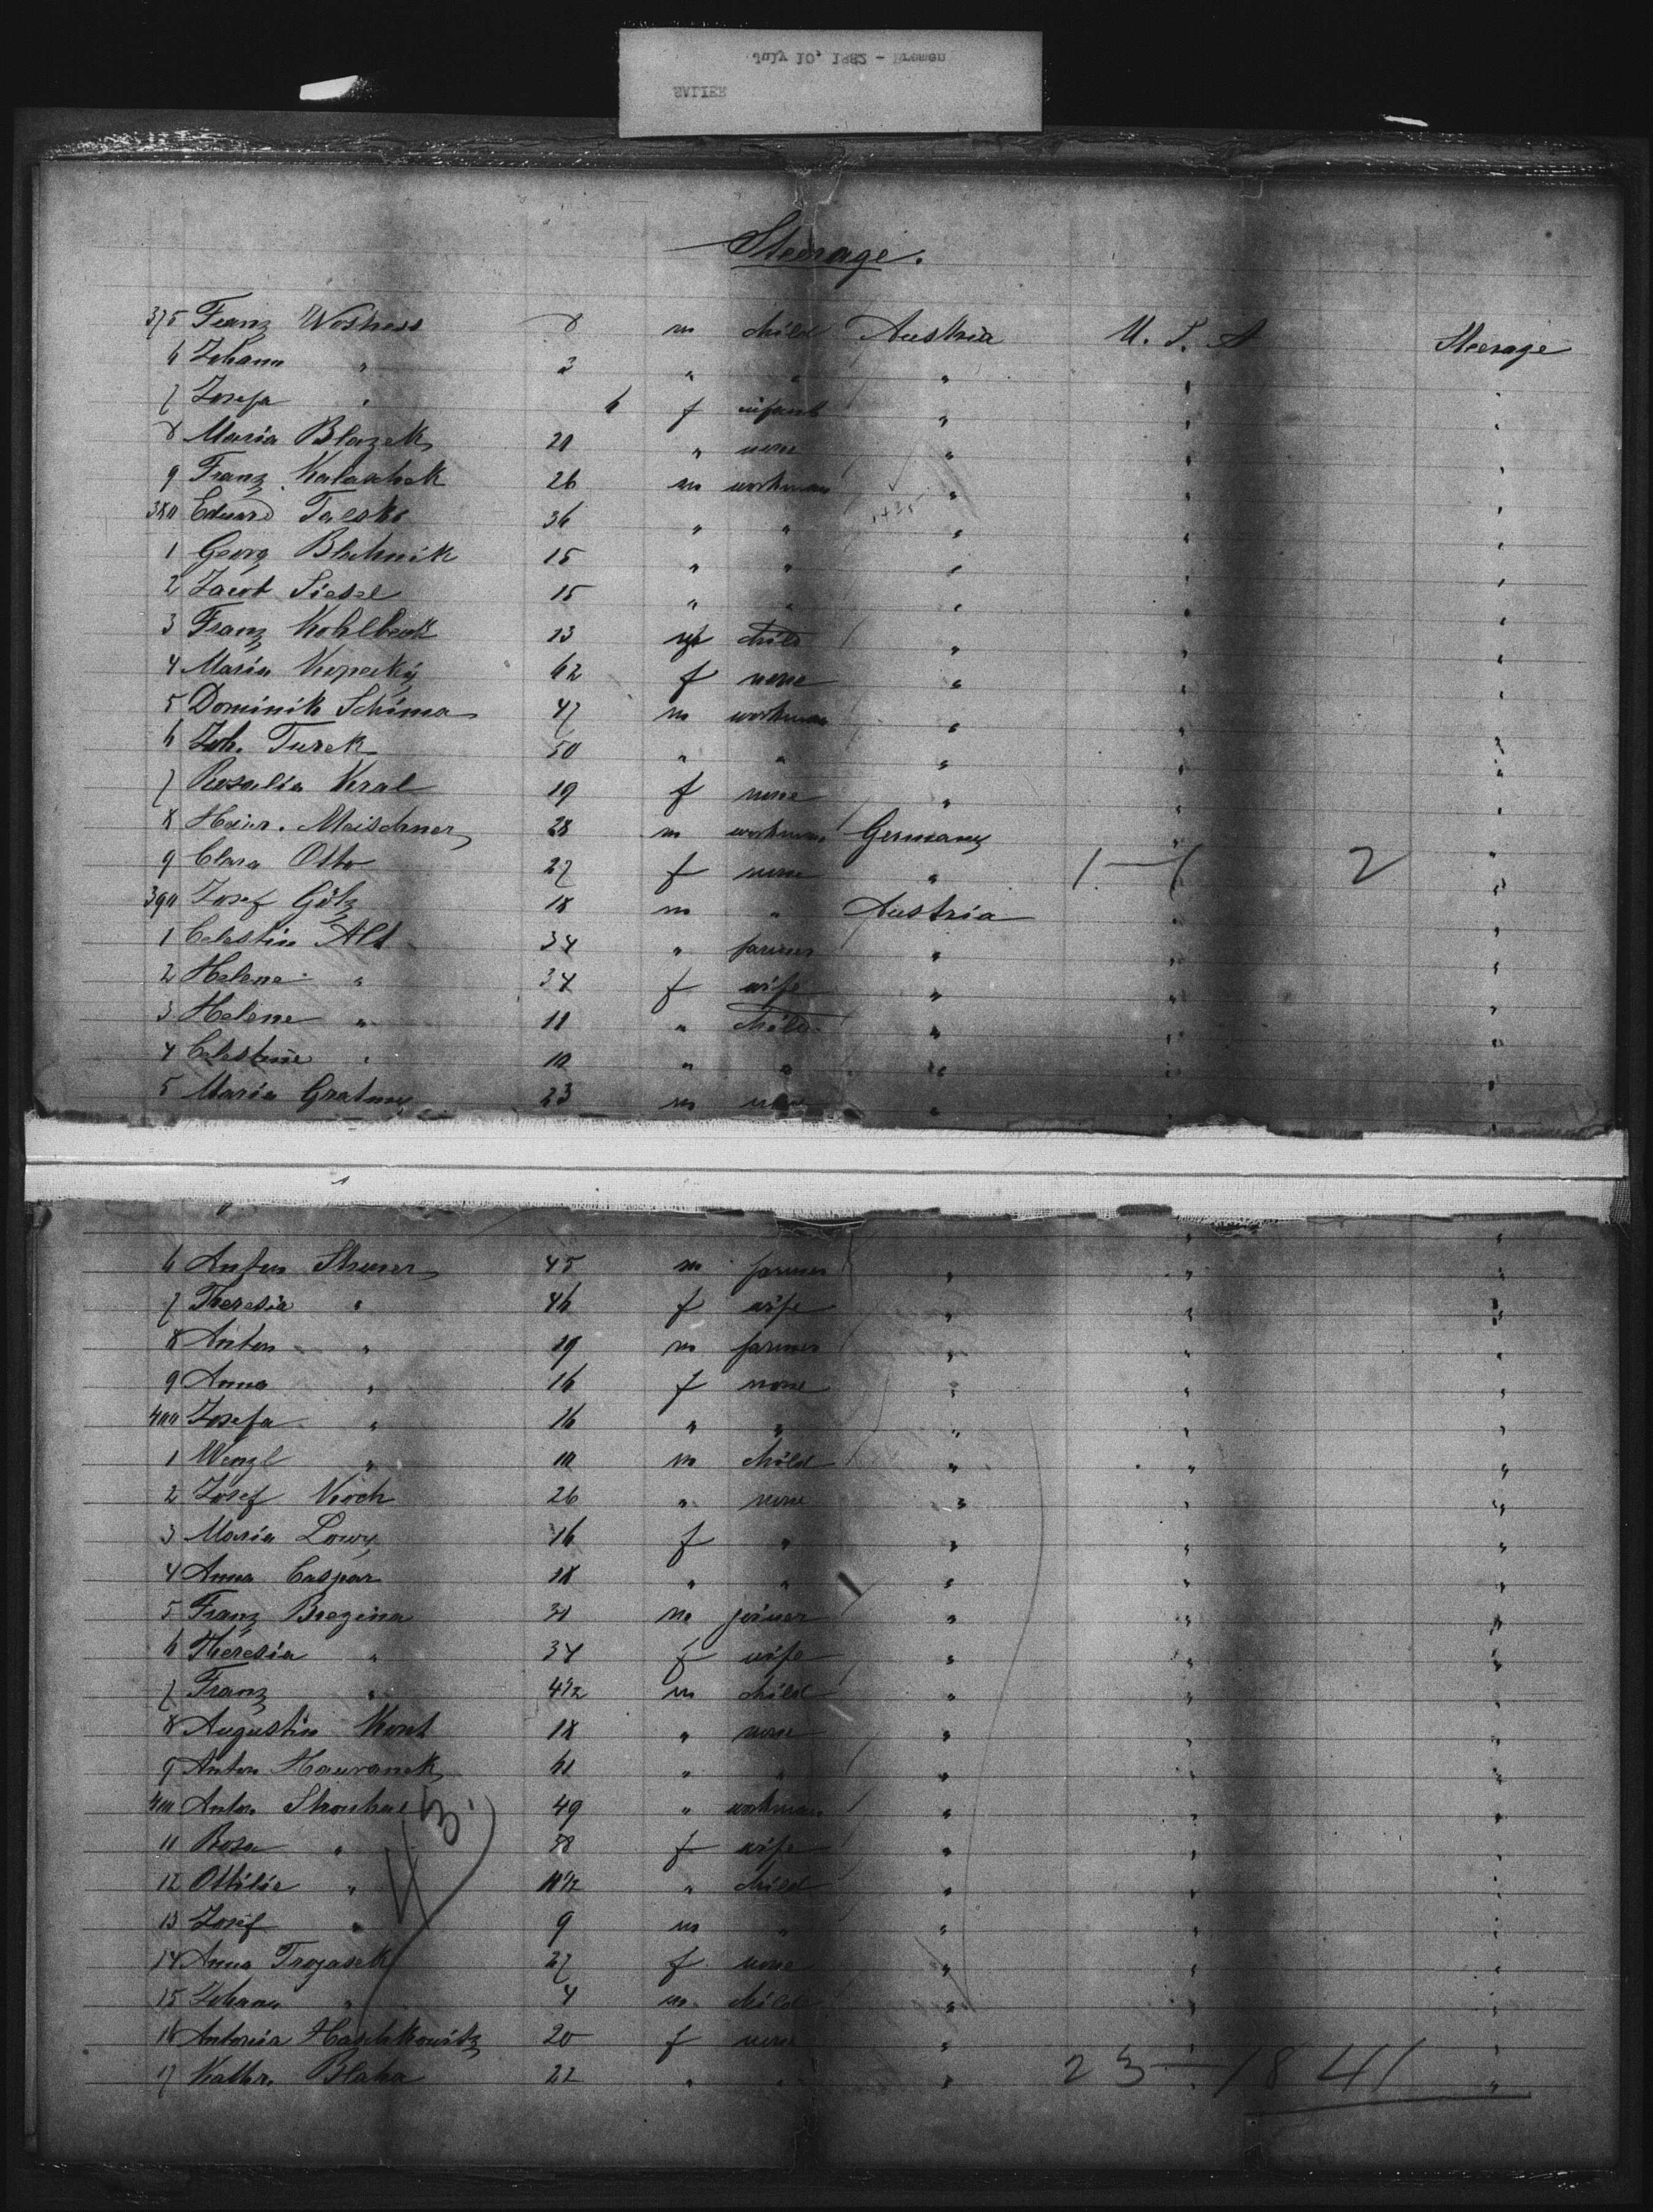 July 10, 1882 - Bremen
SALIER
Steerage.
375 Franz Wostress 8 m child Austria U. S. A Steerage
6 Johann " 3 " " " " "
7 Josefa " 6 f infant " " "
8 Maria Blazek 20 " none " " "
9 Franz Kalaschek 26 m workman " " "
380 Eduard 36 " " " " "
1 Georg Blahnik 15 " " " " "
2 Jacob 15 " " " " "
3 Franz Kohlbeck 13 m child " " "
4 Maria Kopecky 62 f none " " "
5 Dominik Schima 47 m workman " " "
6 Joh. Turek 50 " " " " "
7 Rosalia Kral 19 f none " " "
8 Heinr. Meischner 28 m workman Germany " "
9 Clara Otto 27 f none " 1 — 1 2 "
390 Josef Götz 18 m " Austria " "
1 Celestin Alt 34 " farmer " " "
2 Helene " 34 f wife " " "
3 Helene " 11 " child " " "
4 Celestine " 10 " " " " "
5 Maria 23 m none " " "
6 Anton 45 m farmer " " "
7 Theresia " 46 f wife " " "
8 Anton " 19 m farmer " " "
9 Anna " 16 f none " " "
400 Josefa " 16 " " " " "
1 Wenzl " 10 m child " " "
2 Josef 26 " none " " "
3 Maria Lowy 16 f " " " "
4 Anna Caspar 18 " " " " "
5 Franz Brezina 31 m joiner " " "
6 Theresia " 34 f wife " " "
7 Franz " 4 1/2 m child " " "
8 Augustin Kont 18 " none " " "
9 Anton Hawranek 61 " " " " "
410 Anton Strouhal 49 " workman " " "
11 Rosa " f wife " " "
12 Ottilie " 10 1/2 " child " " "
13 Josef " 9 m " " " "
14 Anna 27 f none " " "
15 Johann " 4 m child " " "
16 Antonia Haschkowitz 20 f none " " "
17 Kathr. Blaha 22 " " " 23 — 18 41 "